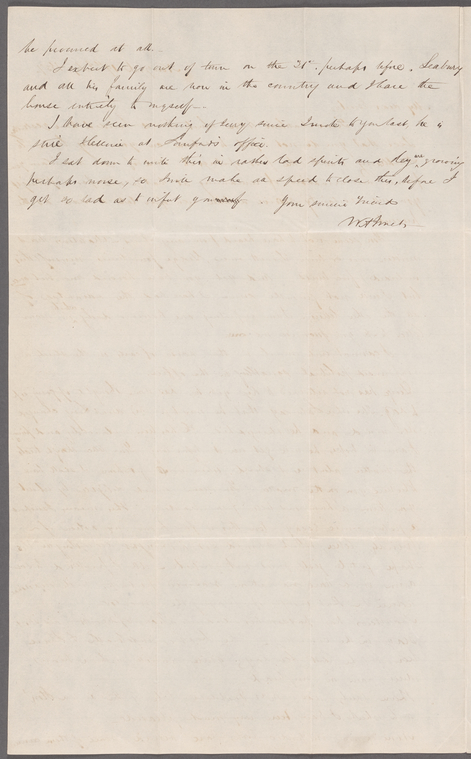 be procured at all.
I expect to go out of town on the 31st. perhaps before. Seabury
and all his family are now in the country and I have the
house entirely to myself.
I have seen nothing of since I wrote to you last, he is
still at office.
I sat down to write this in rather bad spirits and they are growing
perhaps worse, so I will make all speed to close this, before I
get so bad as to infect you. Your sincere friend
W H